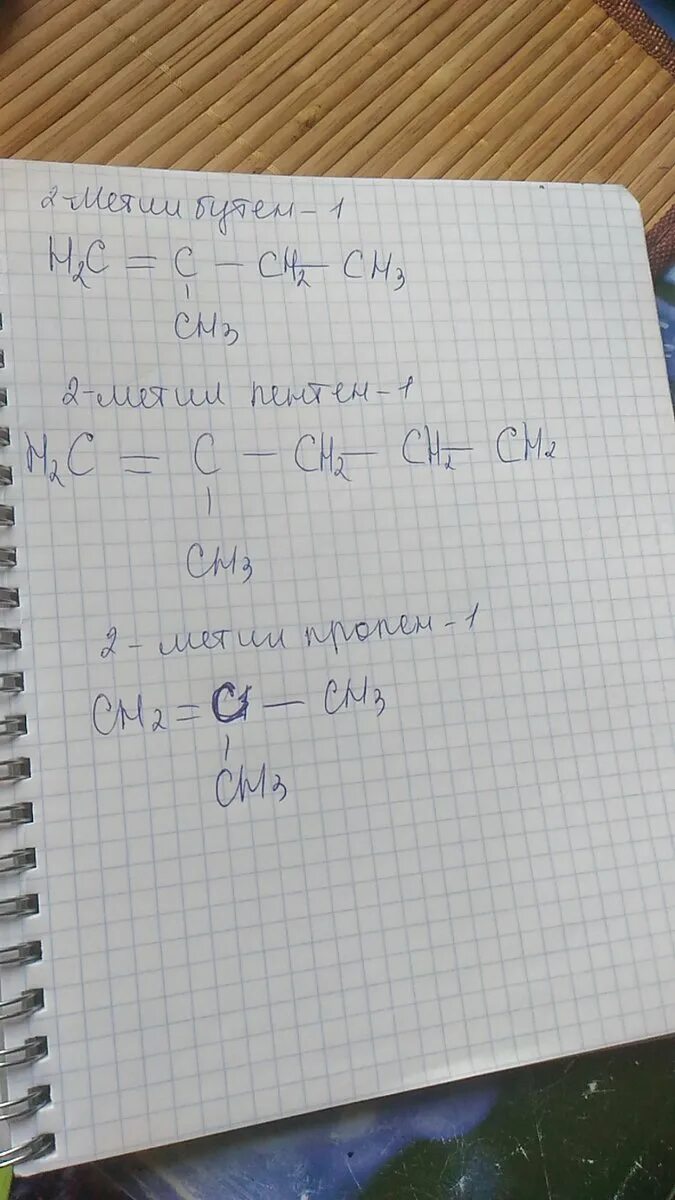 2-метил бутен-1
H₂C = C - CH₂ - CH₃
CH₃
2-метил пентен-1
H₂C = C - CH₂ - CH₂ - CH₂
CH₃
2-метил пропен-1
CH₂ = C - CH₃
CH₃